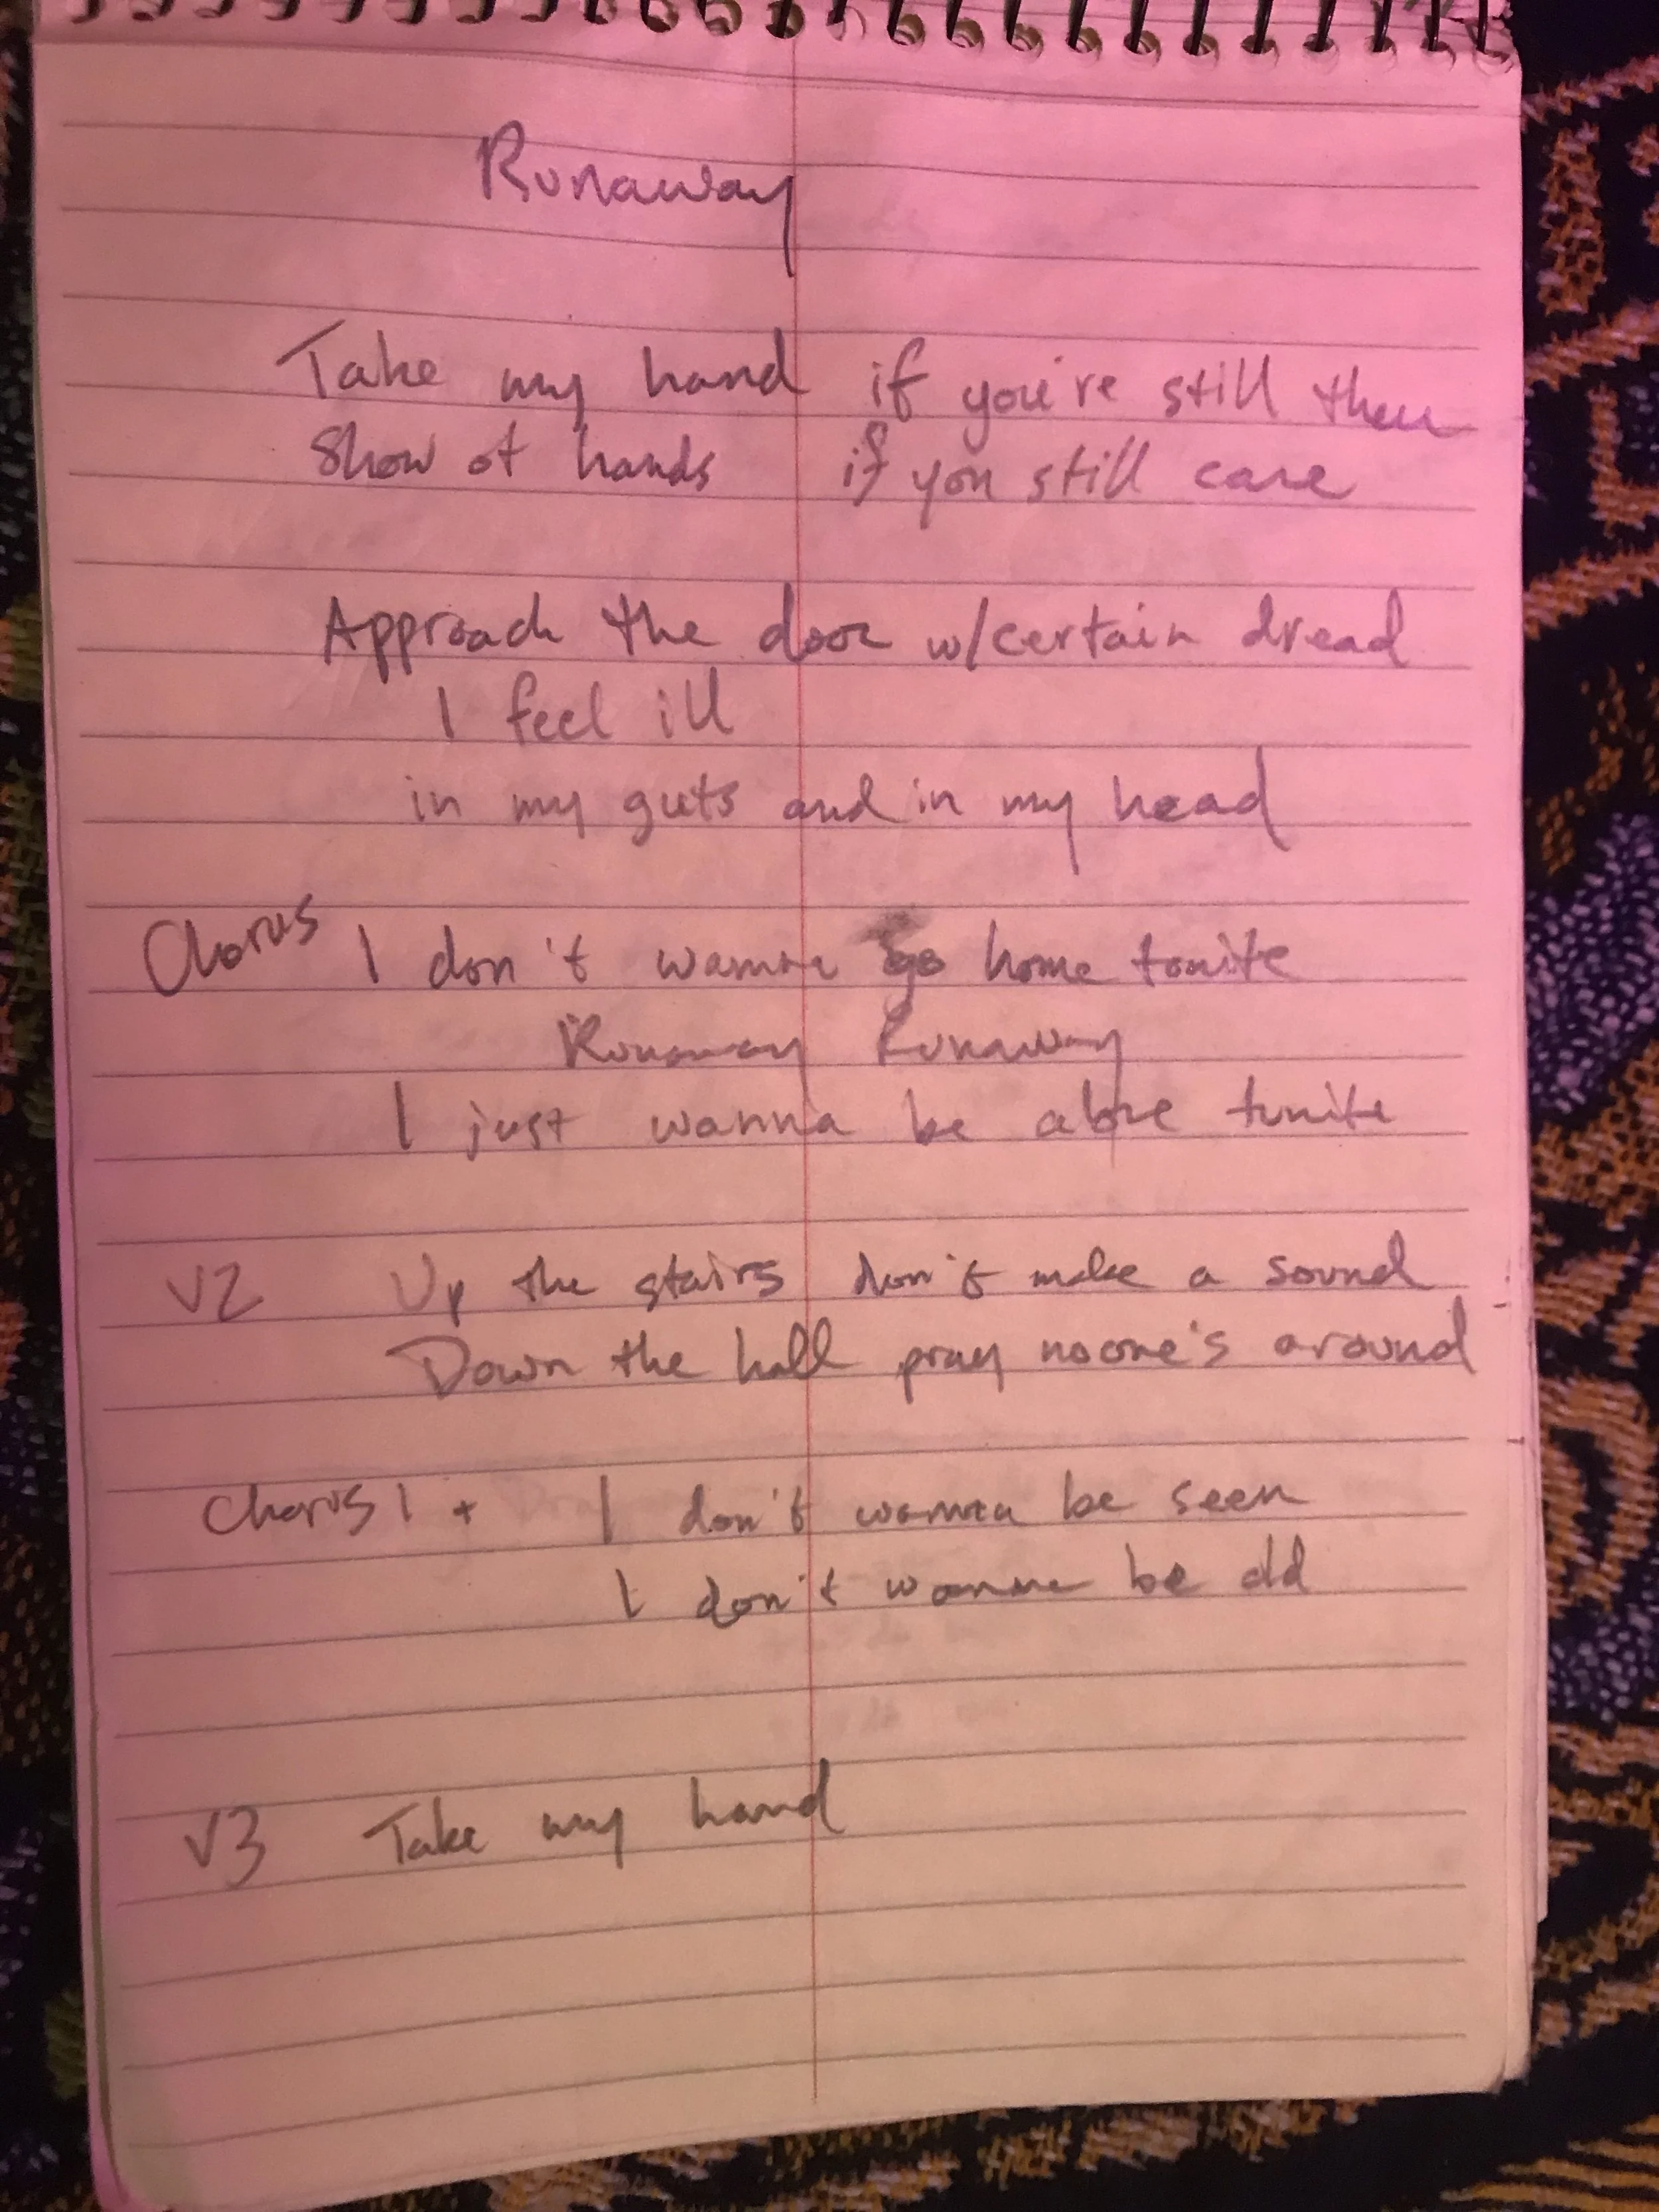 Runaway
Take my hand if you're still there
Show of hands if you still care
Approach the door w/certain dread
I feel ill
in my guts and in my head
Chorus I don't wanna go home tonite
Runaway Runaway
I just wanna be alone tonite
V2 Up the stairs don't make a sound
Down the hall pray noone's around
Chorus 1 + I don't wanna be seen
I don't wanna be old
V3 Take my hand